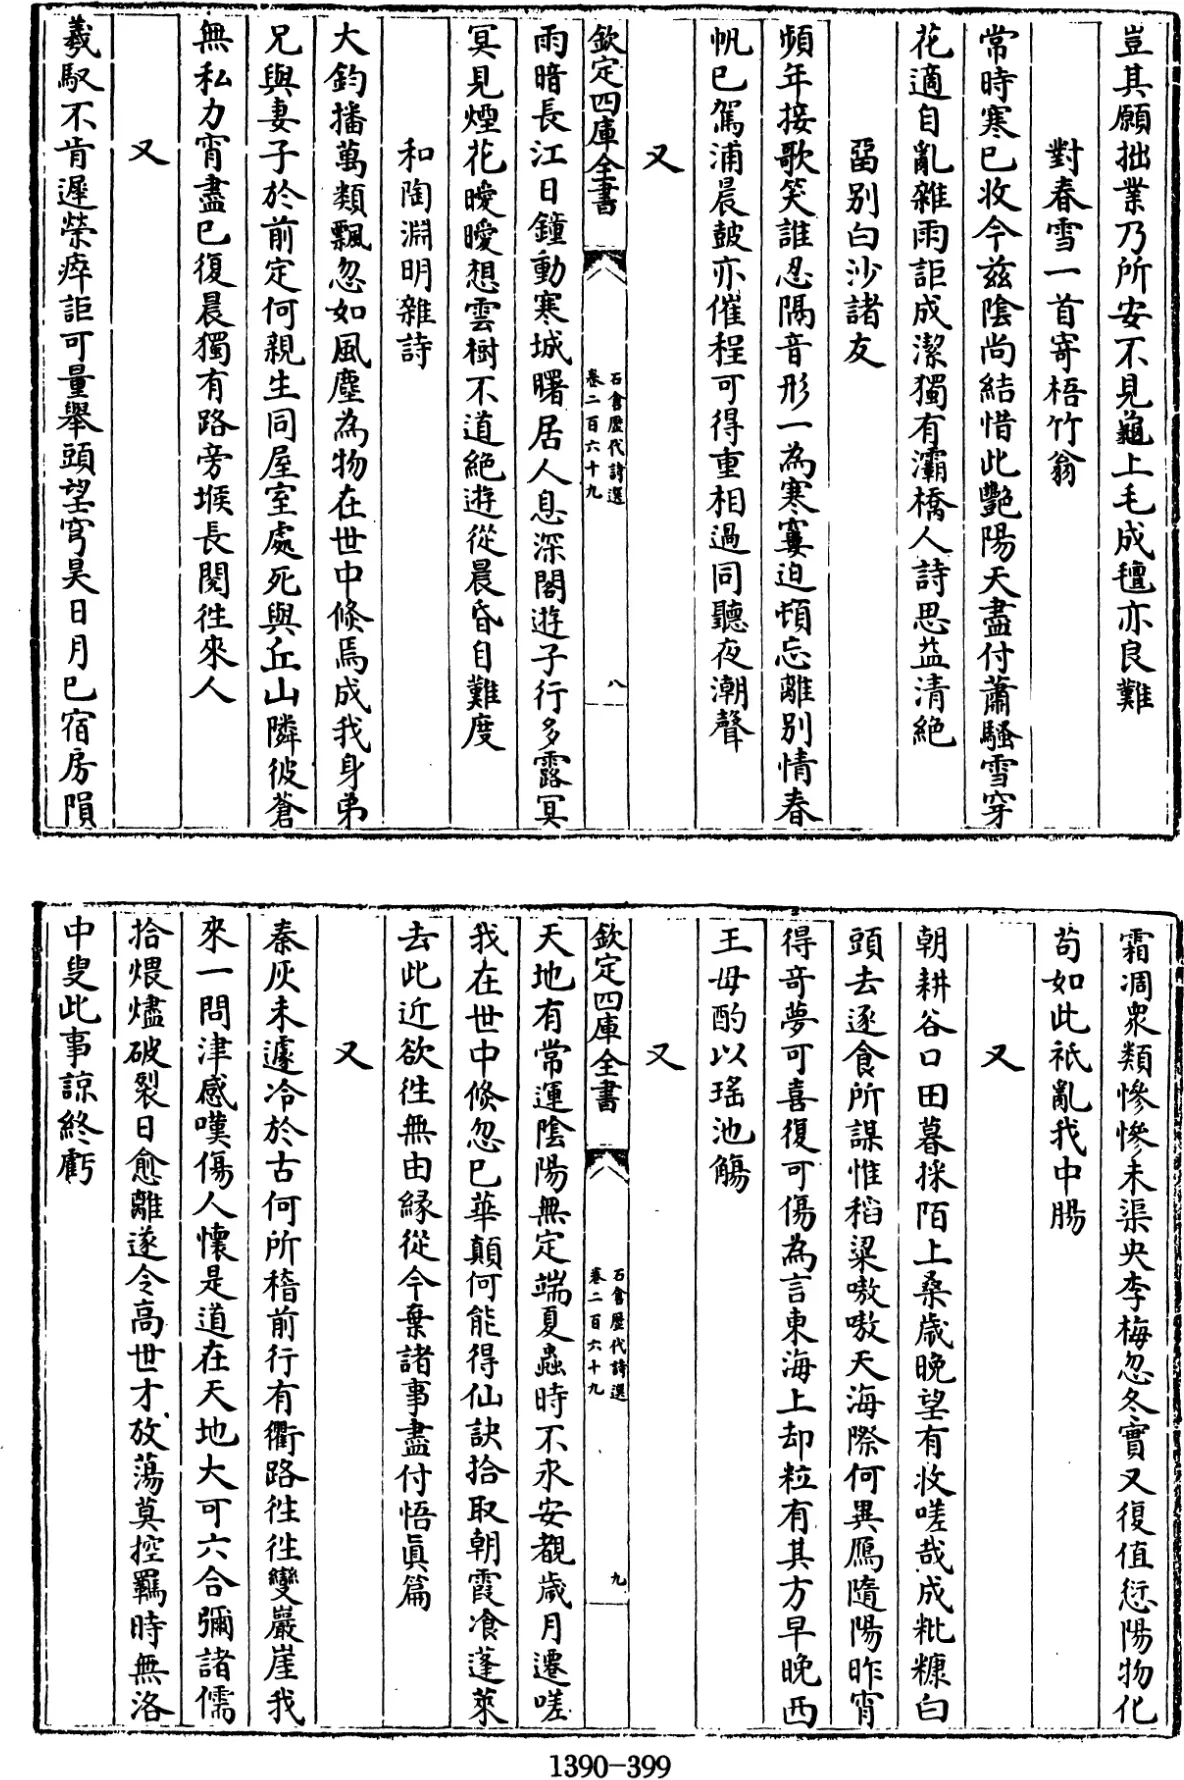 豈其願拙業乃所安不見龜上毛成氊亦良難
對春雪一首寄梧竹翁
常時寒已收今兹陰尚結惜此艷陽天盡付蕭騷雪穿
花適自亂雜雨詎成潔獨有灞橋人詩思益清絶
留别白沙諸友
頻年接歌笑誰忍隔音形一為寒窶迫頓忘離别情春
帆已駕浦晨鼓亦催程可得重相過同聽夜潮聲
又
欽定四庫全書
石倉歷代詩選
卷二百六十九
八
雨暗長江日鐘動寒城曙居人息深閣遊子行多露冥
冥見煙花曖曖想雲樹不道絶遊從晨昏自難度
和陶淵明雜詩
大鈞播萬類飄忽如風塵為物在世中倐焉成我身弟
兄與妻子於前定何親生同屋室處死與丘山隣彼蒼
無私力宵盡已復晨獨有路旁堠長閱徃來人
又
羲馭不肯遲榮瘁詎可量舉頭望穹昊日月已宿房隕
霜凋衆類慘慘未渠央李梅忽冬實又復值愆陽物化
苟如此祇亂我中腸
又
朝耕谷口田暮採陌上桑歲晚望有收嗟哉成粃糠白
頭去逐食所謀惟稻粱嗷嗷天海際何異鴈隨陽昨宵
得奇夢可喜復可傷為言東海上却粒有其方早晚西
王母酌以瑶池觴
又
欽定四庫全書
石倉歷代詩選
卷二百六十九
九
天地有常運陰陽無定端夏蟲時不永安觀歲月遷嗟
我在世中倐忽已華顛何能得仙訣拾取朝霞飡蓬萊
去此近欲徃無由縁從今棄諸事盡付悟真篇
又
秦灰未遽冷於古何所稽前行有衢路徃徃變巖崖我
來一問津感嘆傷人懷是道在天地大可六合彌諸儒
拾煨燼破裂日愈離遂令高世才放蕩莫控羈時無洛
中叟此事諒終虧
1390-399